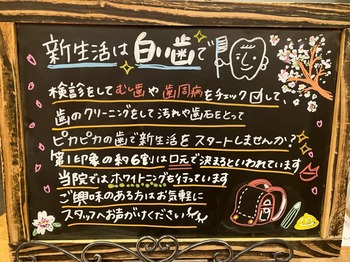 新生活は白い歯で
検診をしてむし歯や歯周病をチェックして、
歯のクリーニングをして汚れや歯石をとって
ピカピカの歯で新生活をスタートしませんか?
第1印象の約6割は口元で決まるといわれています
当院ではホワイトニングを行っています
ご興味のある方はお気軽に
スタッフへお声がけください